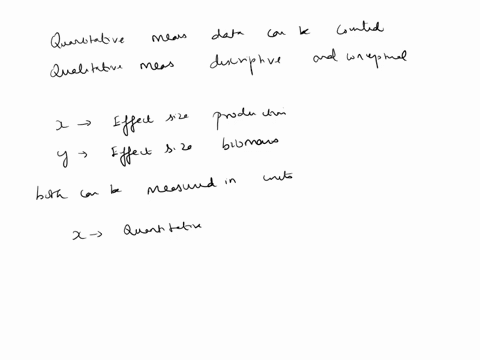 Quantitative means data can be counted
Qualitative means descriptive and conceptual
x → Effect size production
y → Effect size biomass
both can be measured in units
x → Quantitative